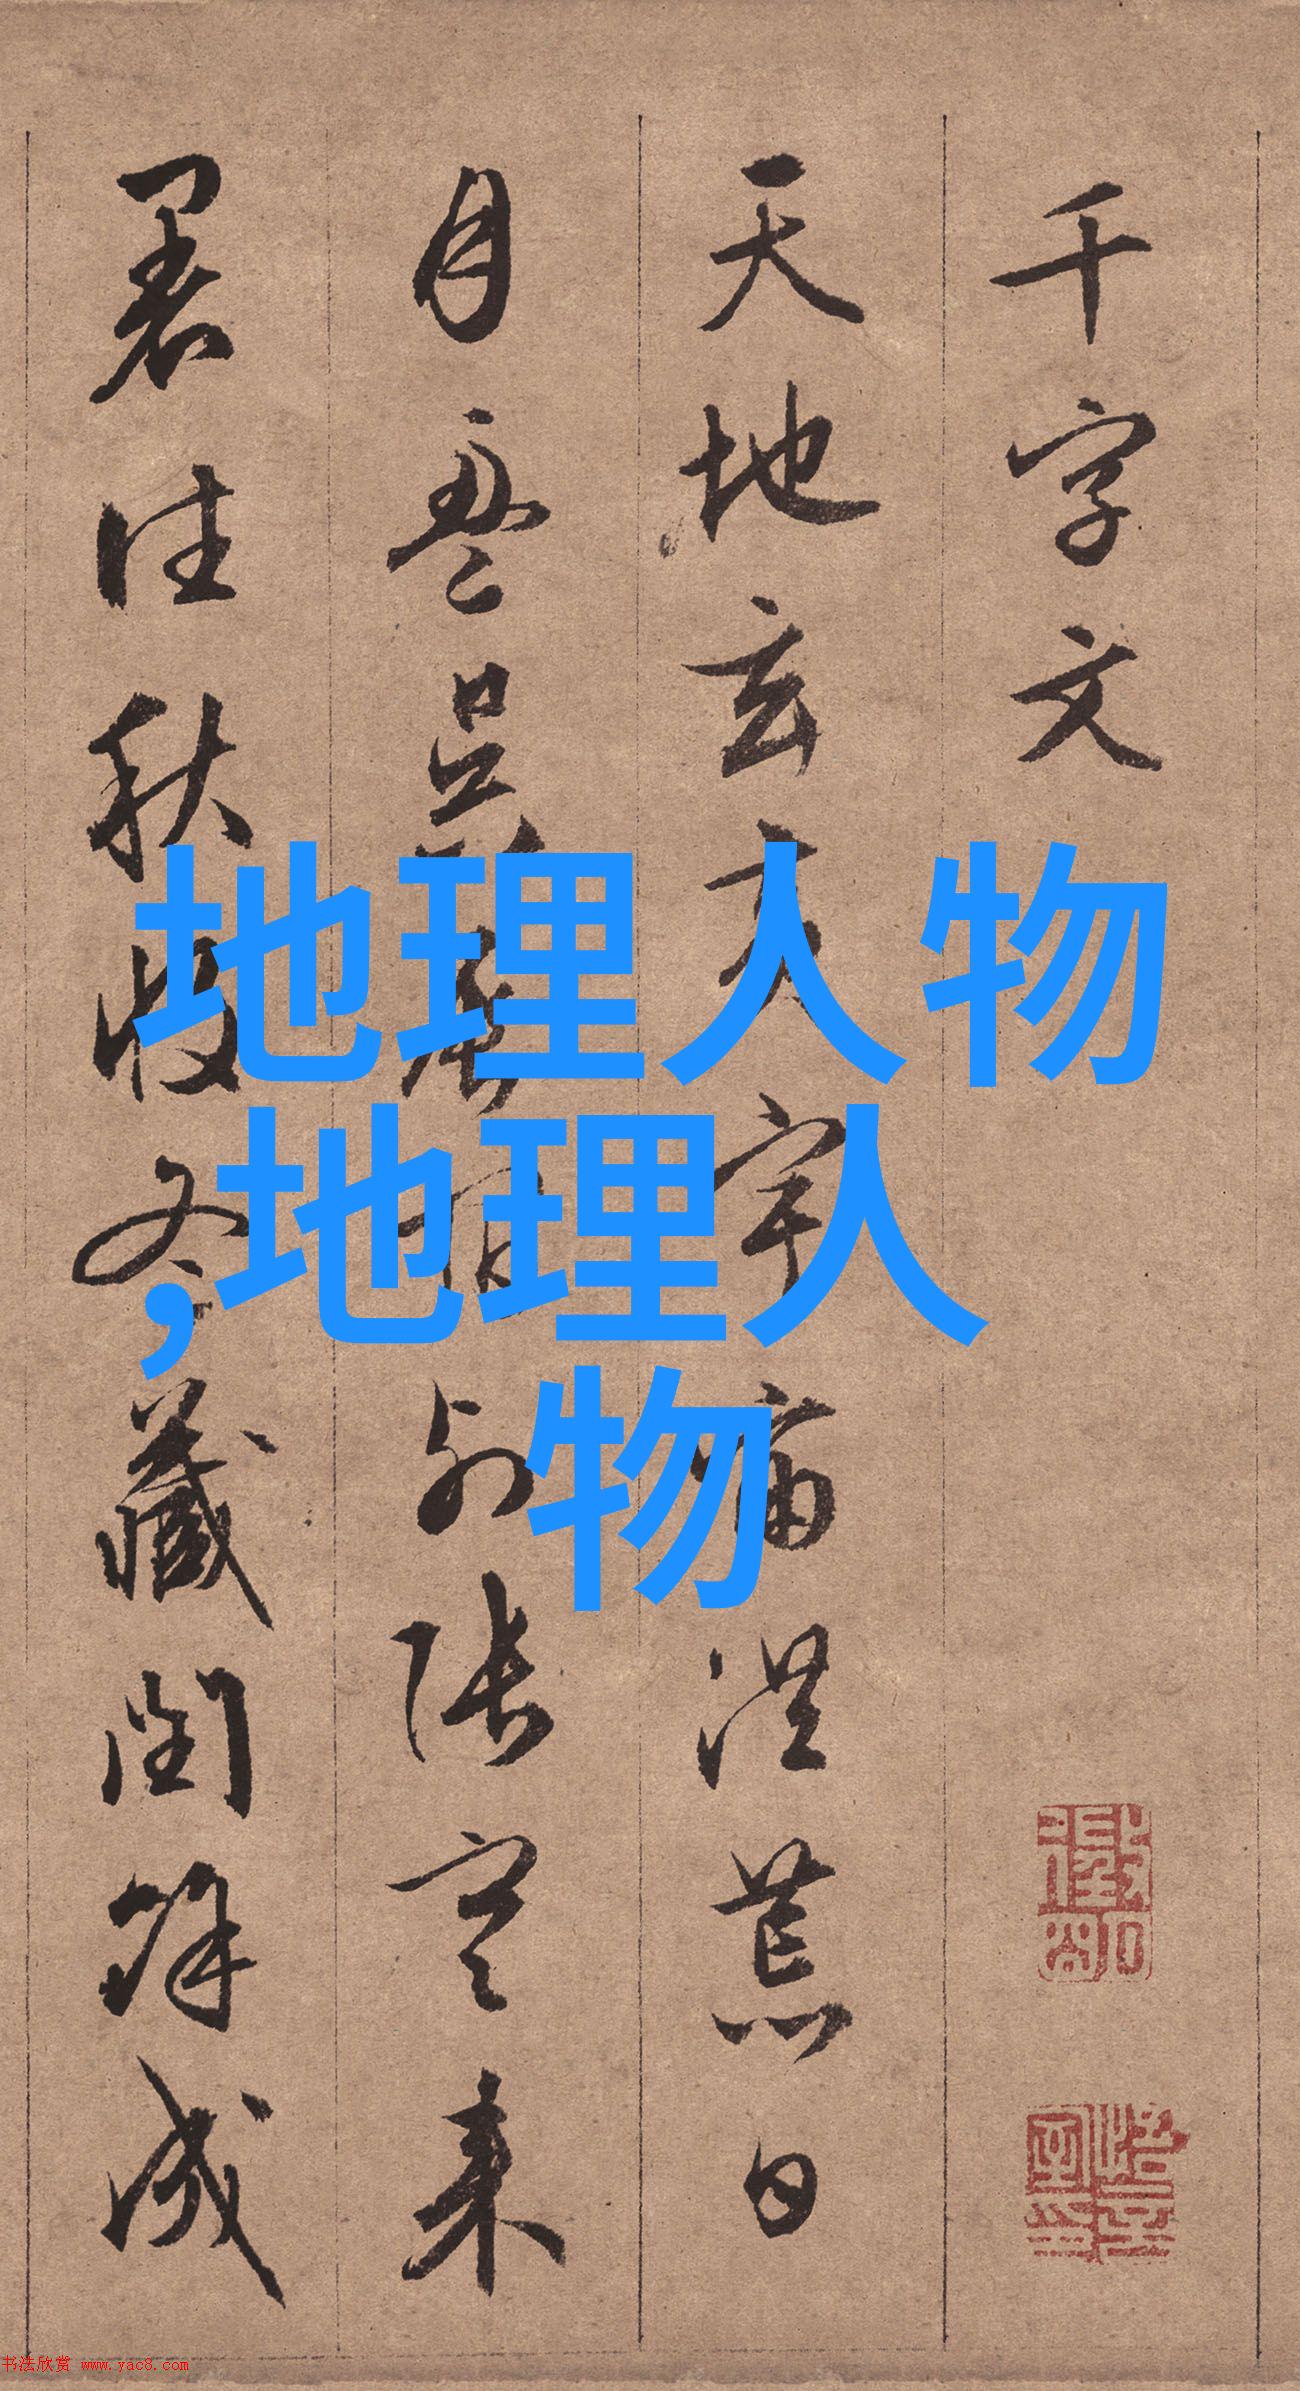 千字文
天地玄黃宇宙洪荒日
月盈昃辰宿列張寒来
暑往秋收冬藏閏餘成
地理人物
,地理人
物
书法欣赏 www.yac8.com